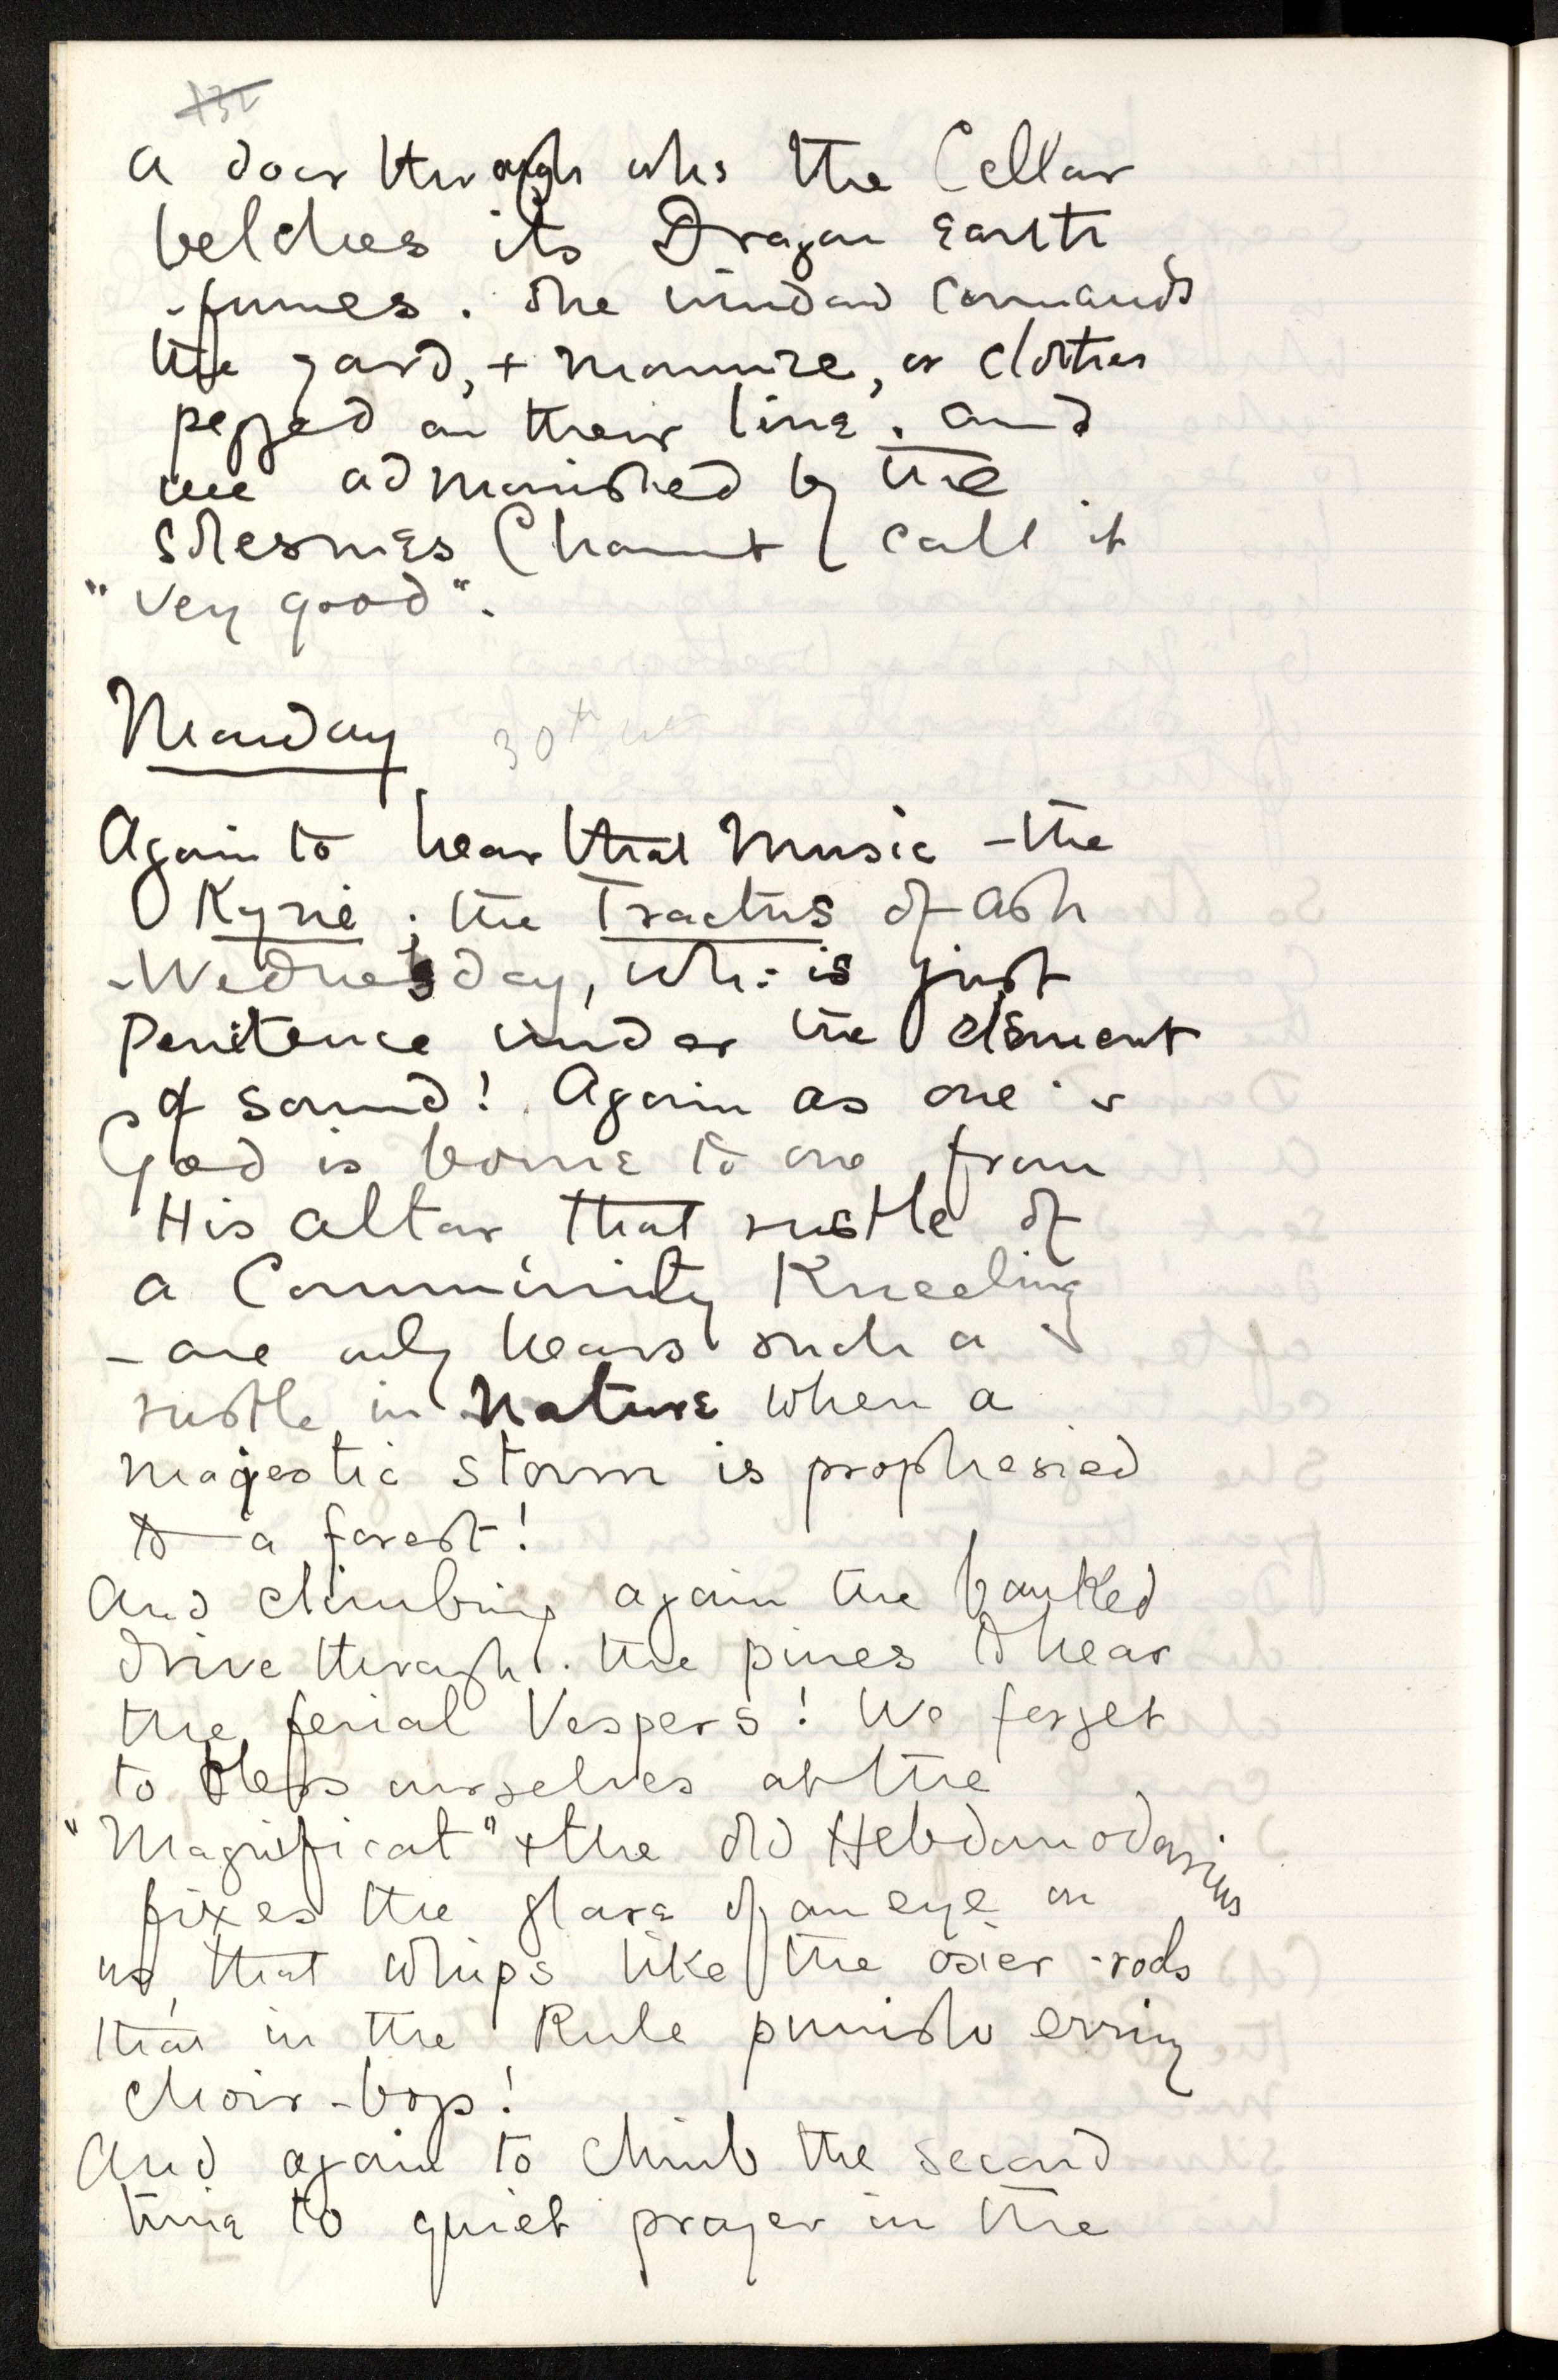 132
a door through wh: the Cellar
belches its Dragon Earth
-fumes. The window commands
the yard, + manure, or clothes
pegged on their line. and
we admonished by the
Solesmes Chaunt call it
"very good".
Monday 30th
Again to hear that Music - the
Kyrie; the Tractus of Ash
-Wednesday, wh: is just
Penitence under the element
of sound! Again as one's
God is borne to one from
His altar that rustle of
a Community Kneeling
- one only hears such a
rustle in Nature when a
majestic storm is prophesied
to a forest!
And climbing again the banked
drive through. the pines to hear
the ferial Vespers! We forget
to bless ourselves at the
"Magnificat" + the old Hebdomodarius
fixes the glare of an eye on
us, that whips like the osier-rods
that in the Rule punish erring
choir-boys!
And again to climb the second
time to quiet prayer in the